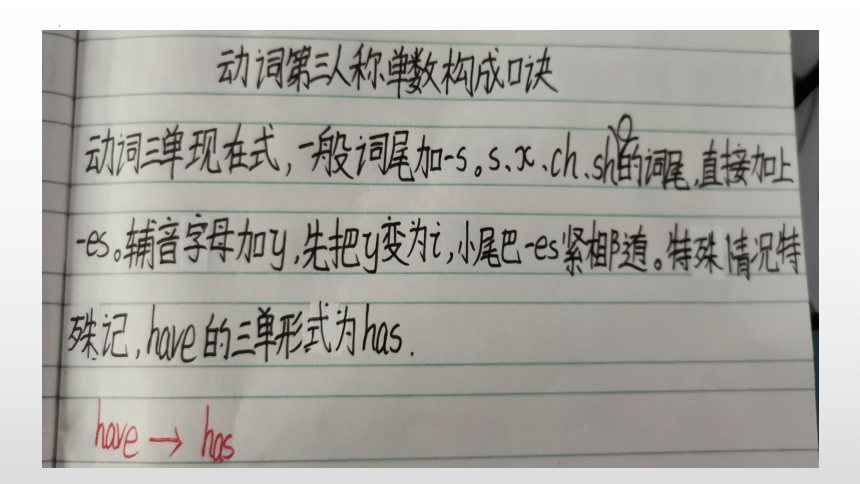 动词第三人称单数构成口诀
动词三单现在式，一般词尾加-s。s、x、ch、sh、o的词尾，直接加上
-es。辅音字母加y，先把y变为i，小尾巴-es紧相随。特殊情况特
殊记，have的三单形式为has.
have → has